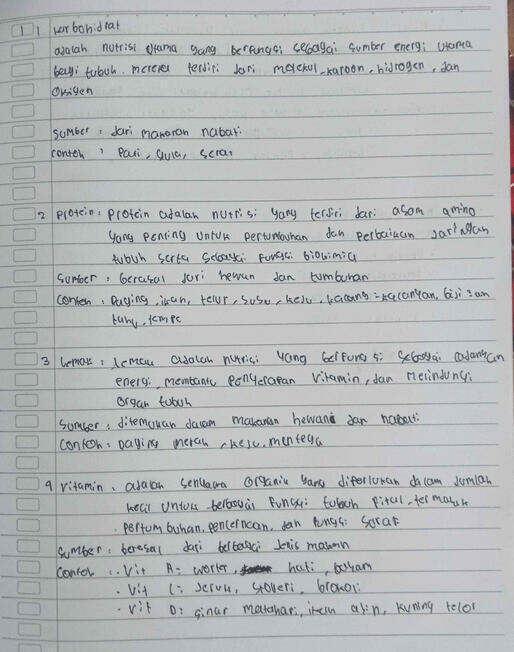 1 1 karbohidrat
adalah nutrisi utama yang berfungsi sebagai sumber energi utama
bagi tubuh. mereka terdiri dari molekul, karbon, hidrogen, dan
oksigen
sumber : dari makanan nabati
contoh : Padi, Gula, serat
2 Protein : Protein adalah nutrisi yang terdiri dari asam amino
yang penting untuk pertumbuhan dan perbaikan jaringan
tubuh serta sebagai fungsi biokimia
sumber : berasal dari hewan dan tumbuhan
Contoh : Daging, ikan, telur, susu, keju, kacang-kacangan, biji-an
tahu, tempe
3 Lemak : Lemak adalah nutrisi yang berfungsi sebagai cadangan
energi, membantu penyerapan vitamin, dan melindungi
organ tubuh
sumber : ditemukan dalam makanan hewani dan nabati
Contoh : Daging merah, keju, mentega
4 Vitamin : adalah senyawa organik yang diperlukan dalam jumlah
kecil untuk berbagai fungsi tubuh Fital, termasuk
pertumbuhan, pencernaan, dan fungsi saraf
sumber : berasal dari berbagai jenis makann
Contoh : . Vit A : wortel, hati, bayam
. Vit C : Jeruk, stoberi, brokoli
. Vit D : sinar matahari, ikan asin, kuning telor